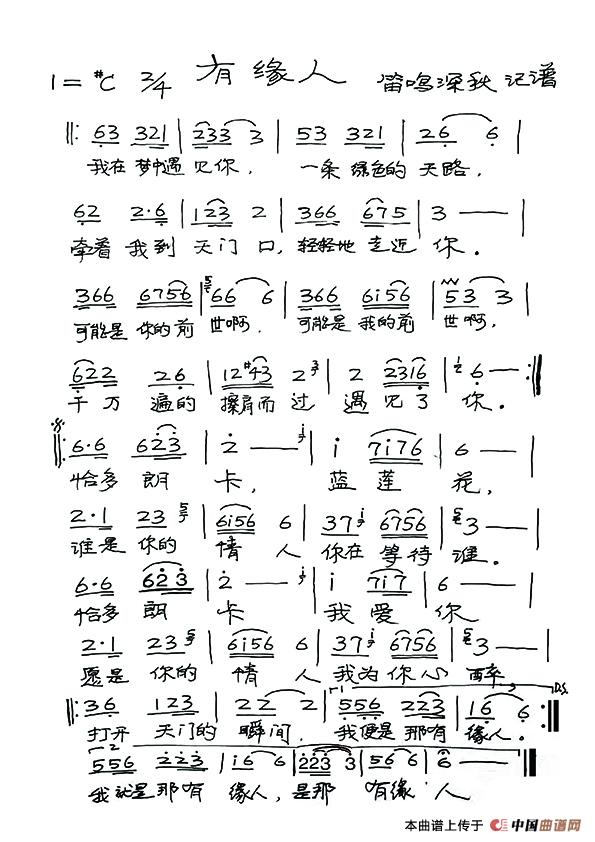 1=#C 2/4 有缘人 笛鸣深秋 记谱
‖: 63 321 | 233 3 | 53 321 | 26 6 |
我在 梦中遇 见你, 一条 绿色的 天路,
62 2·6 | 123 2 | 366 675 | 3 — |
牵着 我到 天门 口, 轻轻地 走近 你.
366 6756 | 66 6 | 366 6i56 | 53 3 |
可能是 你的前 世啊, 可能是 我的前 世啊,
622 26 | 12#43 2 | 2 2316 | 6 — :‖
千万 遍的 擦肩而 过 遇见了 你.
‖: 6·6 623 | 2 — | i 7i76 | 6 — |
恰多 朗 卡, 蓝 莲 花,
2·1 23 | 6i56 6 | 37 6756 | 3 — |
谁是 你的 情 人 你在 等待 谁.
6·6 623 | 2 — | i 7i7 | 6 — |
恰多 朗 卡 我 爱 你
2·1 23 | 6i56 6 | 37 6756 | 3 — |
愿是 你的 情 人 我为 你心 醉.
‖: 36 123 | 22 2 | 556 223 | 16 6 :‖ D.S.
打开 天门的 瞬间, 我便是 那有 缘人.
556 223 | i6 6 | 223 3 | 56 6 | 6 — ‖
我就是 那有 缘人, 是那 有缘 人
本曲谱上传于 中国曲谱网